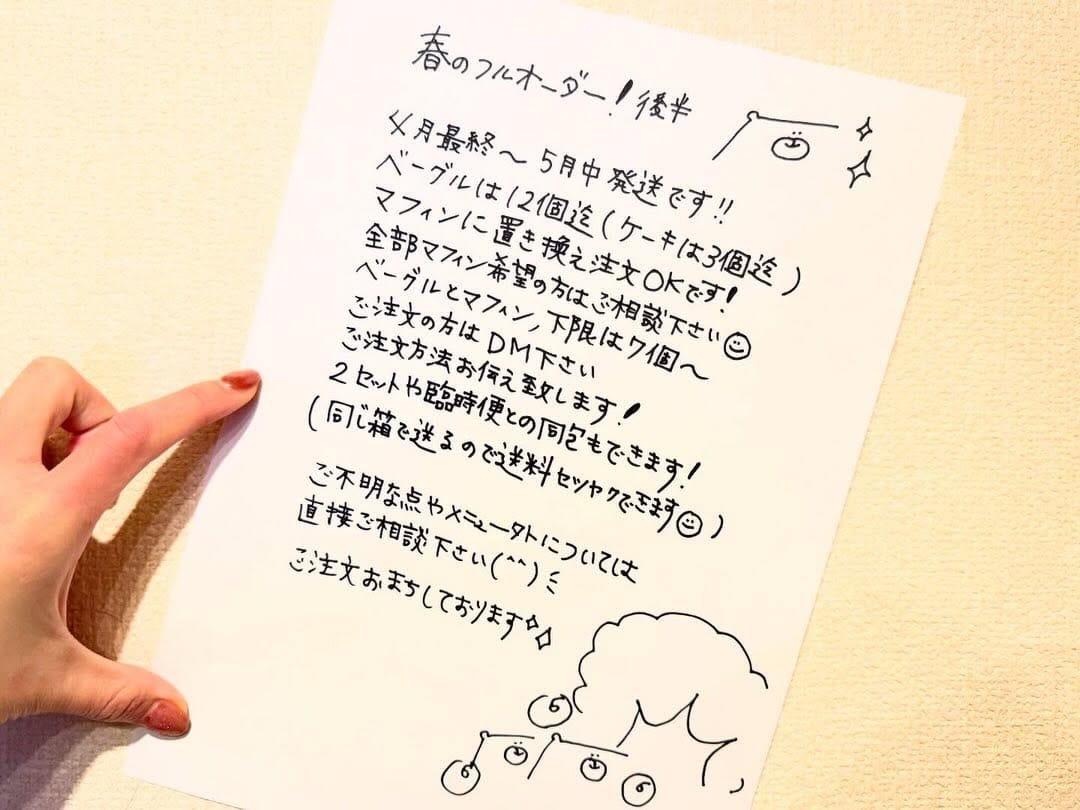 春のフルオーダー!後半
4月最終〜5月中発送です!!
ベーグルは12個迄(ケーキは3個迄)
マフィンに置き換え注文OKです!
全部マフィン希望の方はご相談下さい
ベーグルとマフィン、下限は7個〜
ご注文の方はDM下さい
ご注文方法お伝え致します!
2セットや臨時便との同包もできます!
(同じ箱で送るので送料セツヤクできます)
ご不明な点やメニュー外については
直接ご相談下さい(^^)
ご注文おまちしております